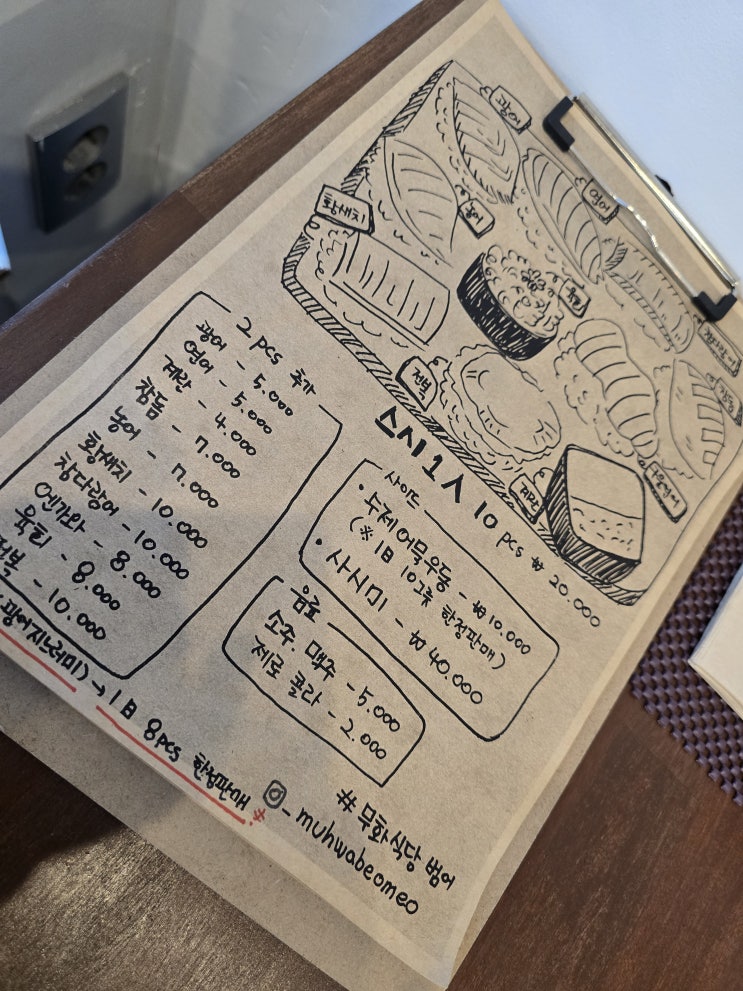 광어
연어
황새치
농어
육회
참다랑어
참돔
전복
계란
스시 1人 10 pcs ₩ 20.000
2 pcs 추가
광어 - 5.000
연어 - 5.000
계란 - 4.000
참돔 - 7.000
농어 - 7.000
황새치 - 10.000
참다랑어 - 10.000
엔가와 - 8.000
육회 - 8.000
전복 - 10.000
(광어지느러미) → 1日 8pcs 한정판매 *
사이드
• 수제어묵우동 - ₩10.000
(※ 1日 10그릇 한정판매)
• 사시미 - ₩ 40.000
음료
소주. 맥주 - 5.000
제로 콜라 - 2.000
# 무화식당 범어
- muhwabeomeo